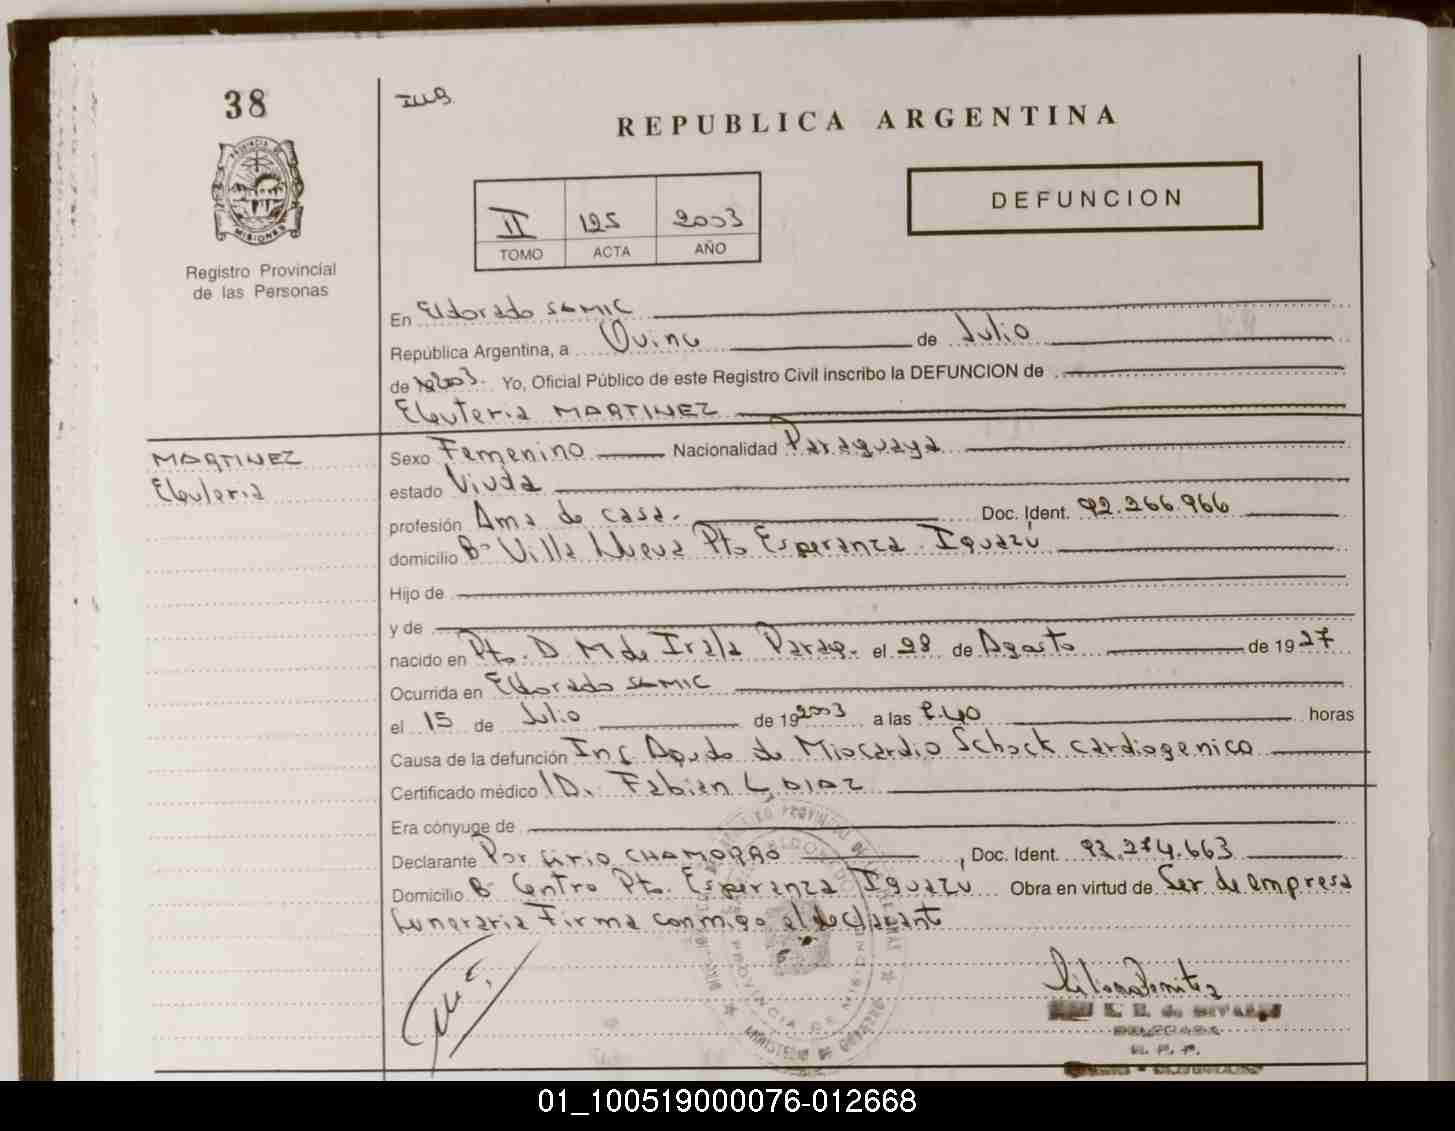 38
REPUBLICA ARGENTINA
PROVINCIA DE
MISIONES
Registro Provincial
de las Personas
II 125 2003
TOMO ACTA AÑO
DEFUNCION
En Eldorado SAMIC
República Argentina, a Quince de Julio
de 2003. Yo, Oficial Público de este Registro Civil inscribo la DEFUNCION de
Eleuteria MARTINEZ
MARTINEZ
Eleuteria
Sexo Femenino Nacionalidad Paraguaya
estado Viuda
profesión Ama de casa. Doc. Ident. 92.266.966
domicilio Bº Villa Nueva Pto Esperanza Iguazú
Hijo de
y de
nacido en Pto. D M de Irala Parag. el 28 de Agosto de 1927
Ocurrida en Eldorado SAMIC
el 15 de Julio de 192003 a las 2.40 horas
Causa de la defunción Inf Agudo de Miocardio Schock cardiogenico
Certificado médico D. Fabian L DIAZ
Era cónyuge de
Declarante Porfirio CHAMORRO, Doc. Ident. 92.274.663
Domicilio Bº Centro Pto. Esperanza Iguazú Obra en virtud de Ser de empresa
funeraria Firma conmigo el declarant
PROVINCIA DE MISIONES
MINISTERIO DE GOBIERNO
DELEGADA
R. P. P.
01_100519000076-012668